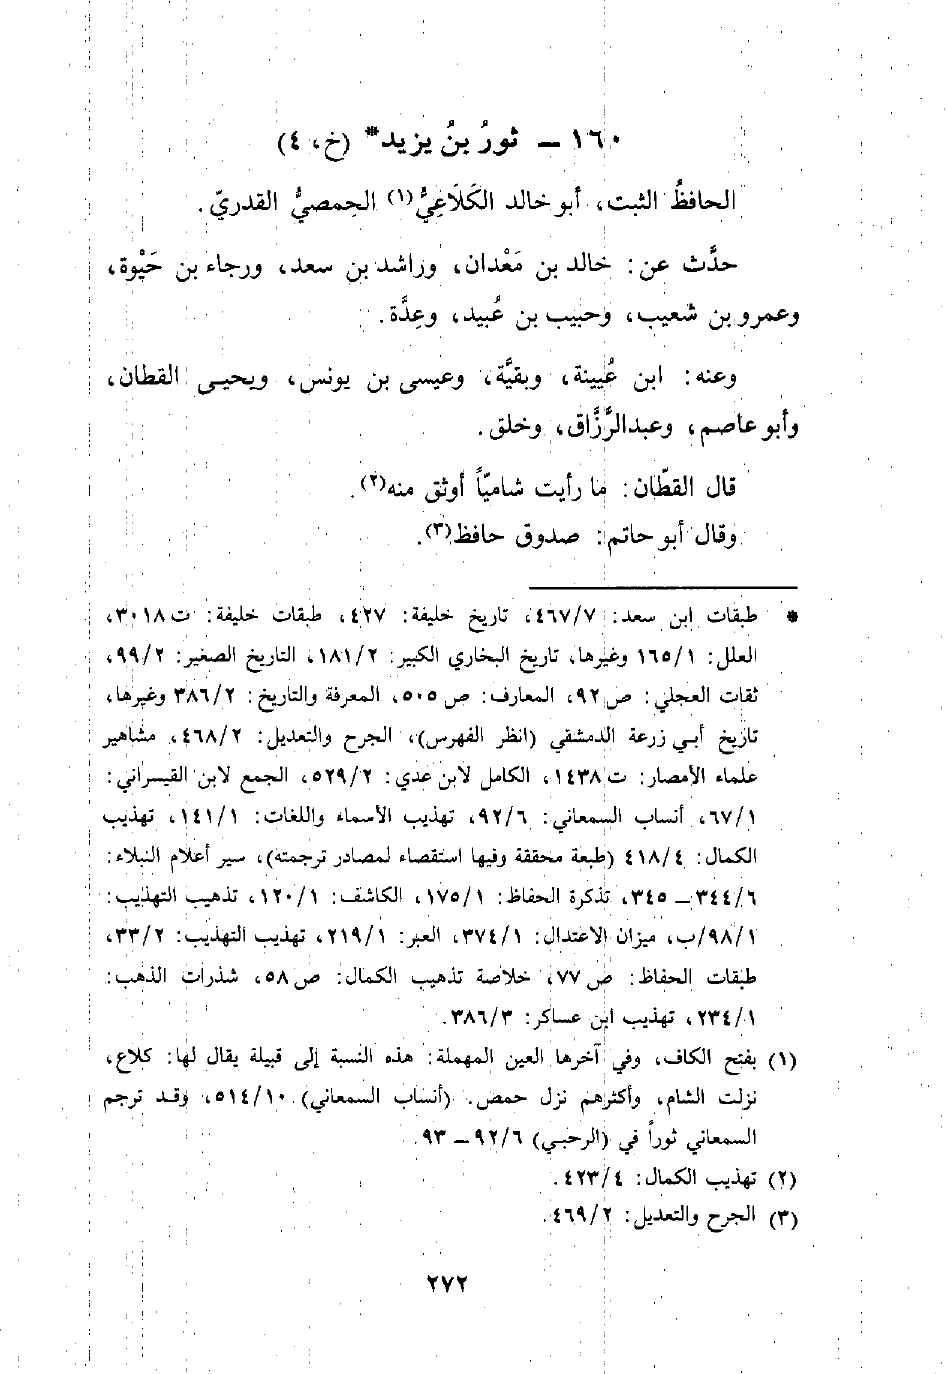 ١٦٠ – ثورُ بنُ يزيد* (خ، ٤)
الحافظُ الثبت، أبو خالد الكَلَاعِيُّ(١) الحِمصيُّ القدريّ.
حدَّث عن: خالد بن مَعْدان، وراشد بن سعد، ورجاء بن حَيْوة،
وعمرو بن شعيب، وحبيب بن عُبيد، وعِدَّة.
وعنه: ابن عُيينة، وبقيَّة، وعيسى بن يونس، ويحيى القطان،
وأبو عاصم، وعبدالرَّزَّاق، وخلق.
قال القطّان: ما رأيت شاميّاً أوثق منه(٢).
وقال أبو حاتم: صدوق حافظ(٣).
* طبقات ابن سعد: ٤٦٧/٧، تاريخ خليفة: ٤٢٧، طبقات خليفة: ت ٣٠١٨،
العلل: ١٦٥/١ وغيرها، تاريخ البخاري الكبير: ١٨١/٢، التاريخ الصغير: ٩٩/٢،
ثقات العجلي: ص ٩٢، المعارف: ص ٥٠٥، المعرفة والتاريخ: ٣٨٦/٢ وغيرها،
تاريخ أبي زرعة الدمشقي (انظر الفهرس)، الجرح والتعديل: ٤٦٨/٢، مشاهير
علماء الأمصار: ت ١٤٣٨، الكامل لابن عدي: ٥٢٩/٢، الجمع لابن القيسراني:
٦٧/١، أنساب السمعاني: ٩٢/٦، تهذيب الأسماء واللغات: ١٤١/١، تهذيب
الكمال: ٤١٨/٤ (طبعة محققة وفيها استقصاء لمصادر ترجمته)، سير أعلام النبلاء:
٣٤٤/٦ – ٣٤٥، تذكرة الحفاظ: ١٧٥/١، الكاشف: ١٢٠/١، تذهيب التهذيب:
٩٨/١/ب، ميزان الاعتدال: ٣٧٤/١، العبر: ٢١٩/١، تهذيب التهذيب: ٣٣/٢،
طبقات الحفاظ: ص ٧٧، خلاصة تذهيب الكمال: ص ٥٨، شذرات الذهب:
٢٣٤/١، تهذيب ابن عساكر: ٣٨٦/٣.
(١) بفتح الكاف، وفي آخرها العين المهملة: هذه النسبة إلى قبيلة يقال لها: كلاع،
نزلت الشام، وأكثرهم نزل حمص. (أنساب السمعاني) ٥١٤/١٠، وقد ترجم
السمعاني ثوراً في (الرحبي) ٩٢/٦ – ٩٣.
(٢) تهذيب الكمال: ٤٢٣/٤.
(٣) الجرح والتعديل: ٤٦٩/٢.
٢٧٢